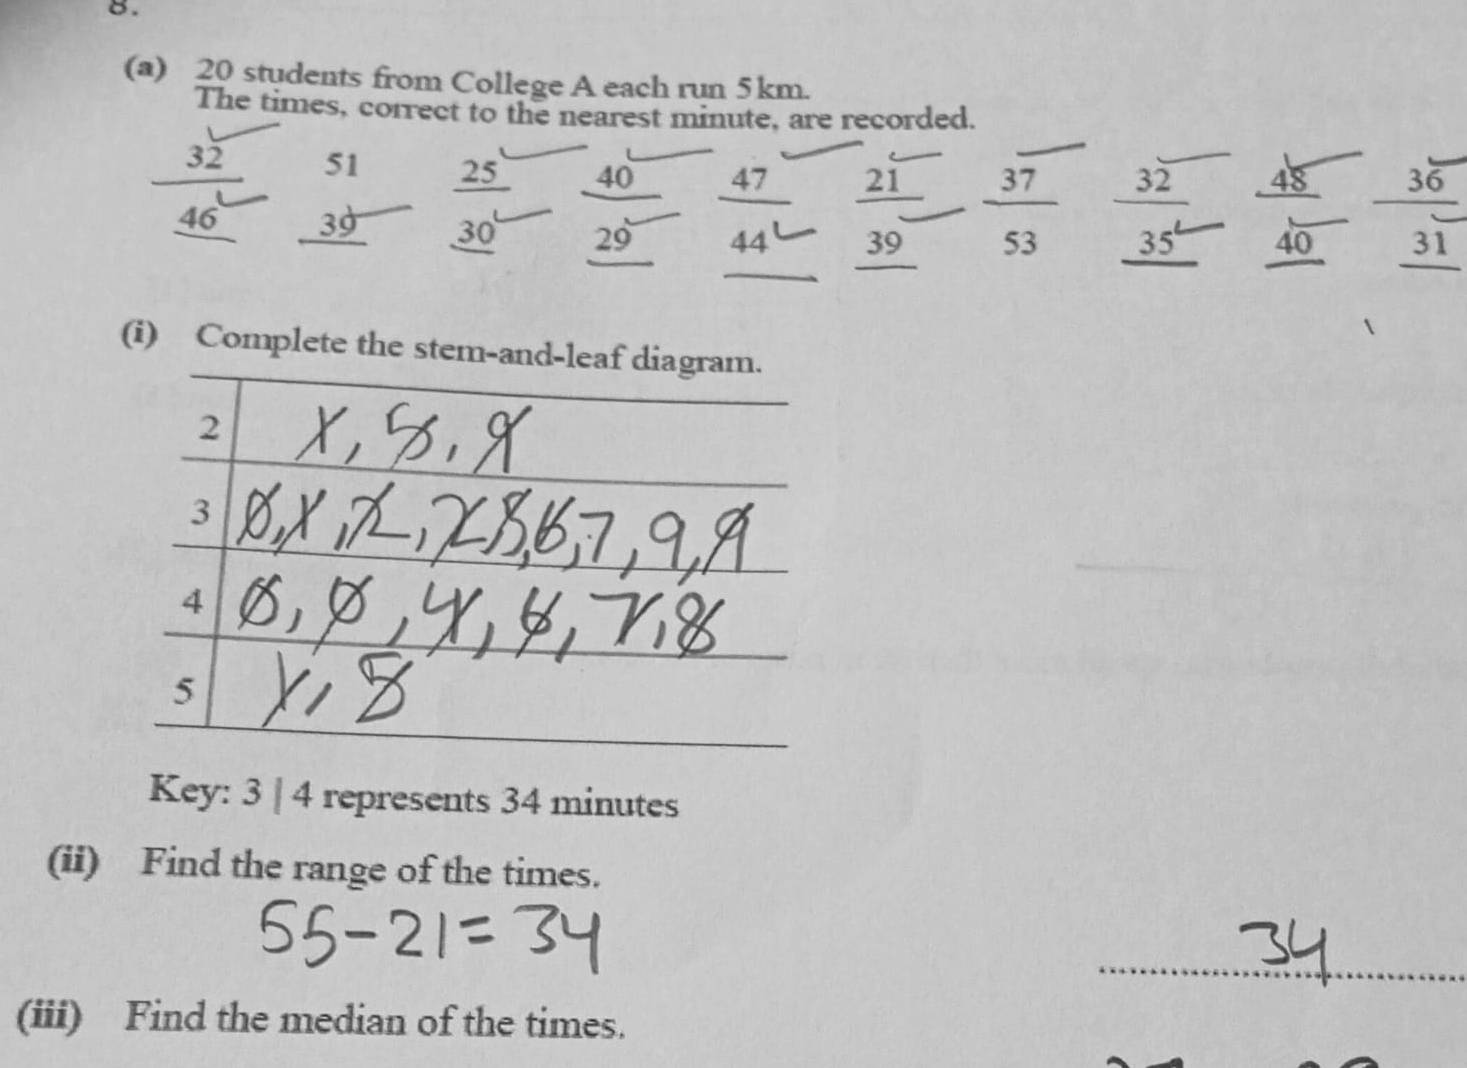 8.
(a) 20 students from College A each run 5 km.
The times, correct to the nearest minute, are recorded.
32 51 25 40 47 21 37 32 48 36
46 39 30 29 44 39 53 35 40 31
(i) Complete the stem-and-leaf diagram.
2 1, 5, 9
3 0, 1, 2, 2 5, 6, 7, 9, 9
4 0, 0, 4, 6, 7, 8
5 1, 5
Key: 3 | 4 represents 34 minutes
(ii) Find the range of the times.
55 - 21 = 34
34
(iii) Find the median of the times.